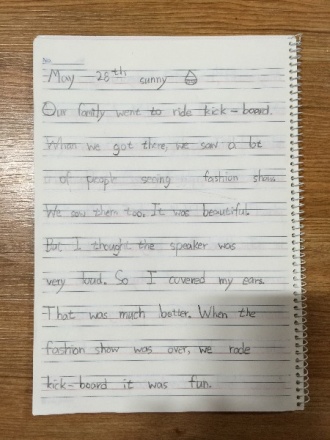 May 28th sunny
Our family went to ride kick-board.
When we got there, we saw a lot
of people seeing fashion show.
We saw them too. It was beautiful.
But I thought the speaker was
very loud. So I covered my ears.
That was much better. When the
fashion show was over, we rode
kick-board it was fun.